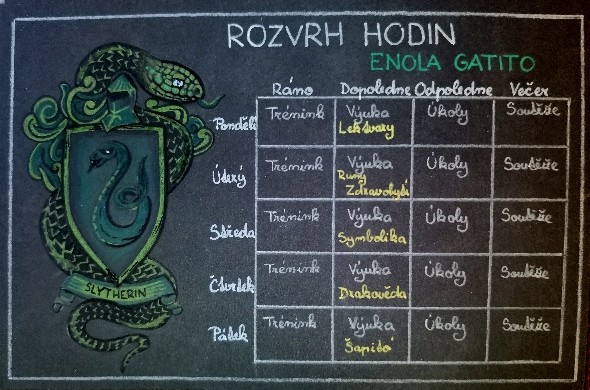 ROZVRH HODIN
ENOLA GATITO
Ráno Dopoledne Odpoledne Večer
Pondělí Trénink Výuka Úkoly Soutěže
Lektvary
Úterý Trénink Výuka Úkoly Soutěže
Runy
Zdravověda
Středa Trénink Výuka Úkoly Soutěže
Symbolika
Čtvrtek Trénink Výuka Úkoly Soutěže
Drakověda
SLYTHERIN
Pátek Trénink Výuka Úkoly Soutěže
Šapitó